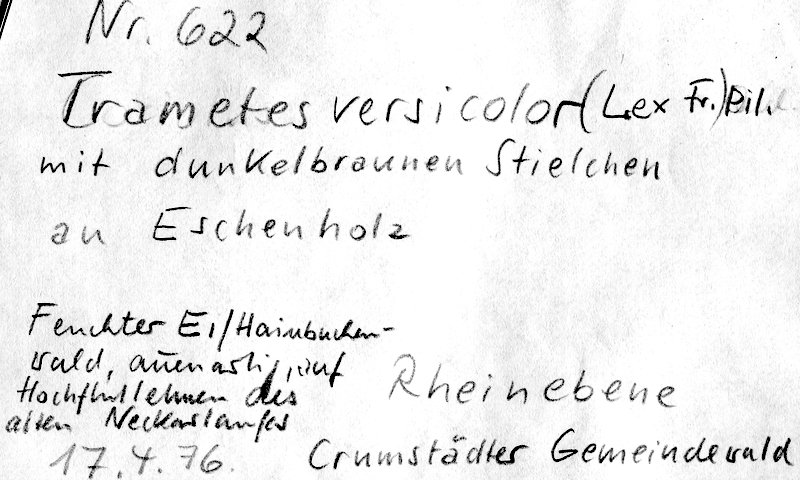 Nr. 622
Trametes versicolor (L. ex Fr.) Pil.
mit dunkelbraunen Stielchen
an Eschenholz
Feuchter Ei/Hainbuchen-
wald, auenartig, auf
Hochflutlehmen des
alten Neckarlaufes
Rheinebene
17.4.76.
Crumstädter Gemeindewald